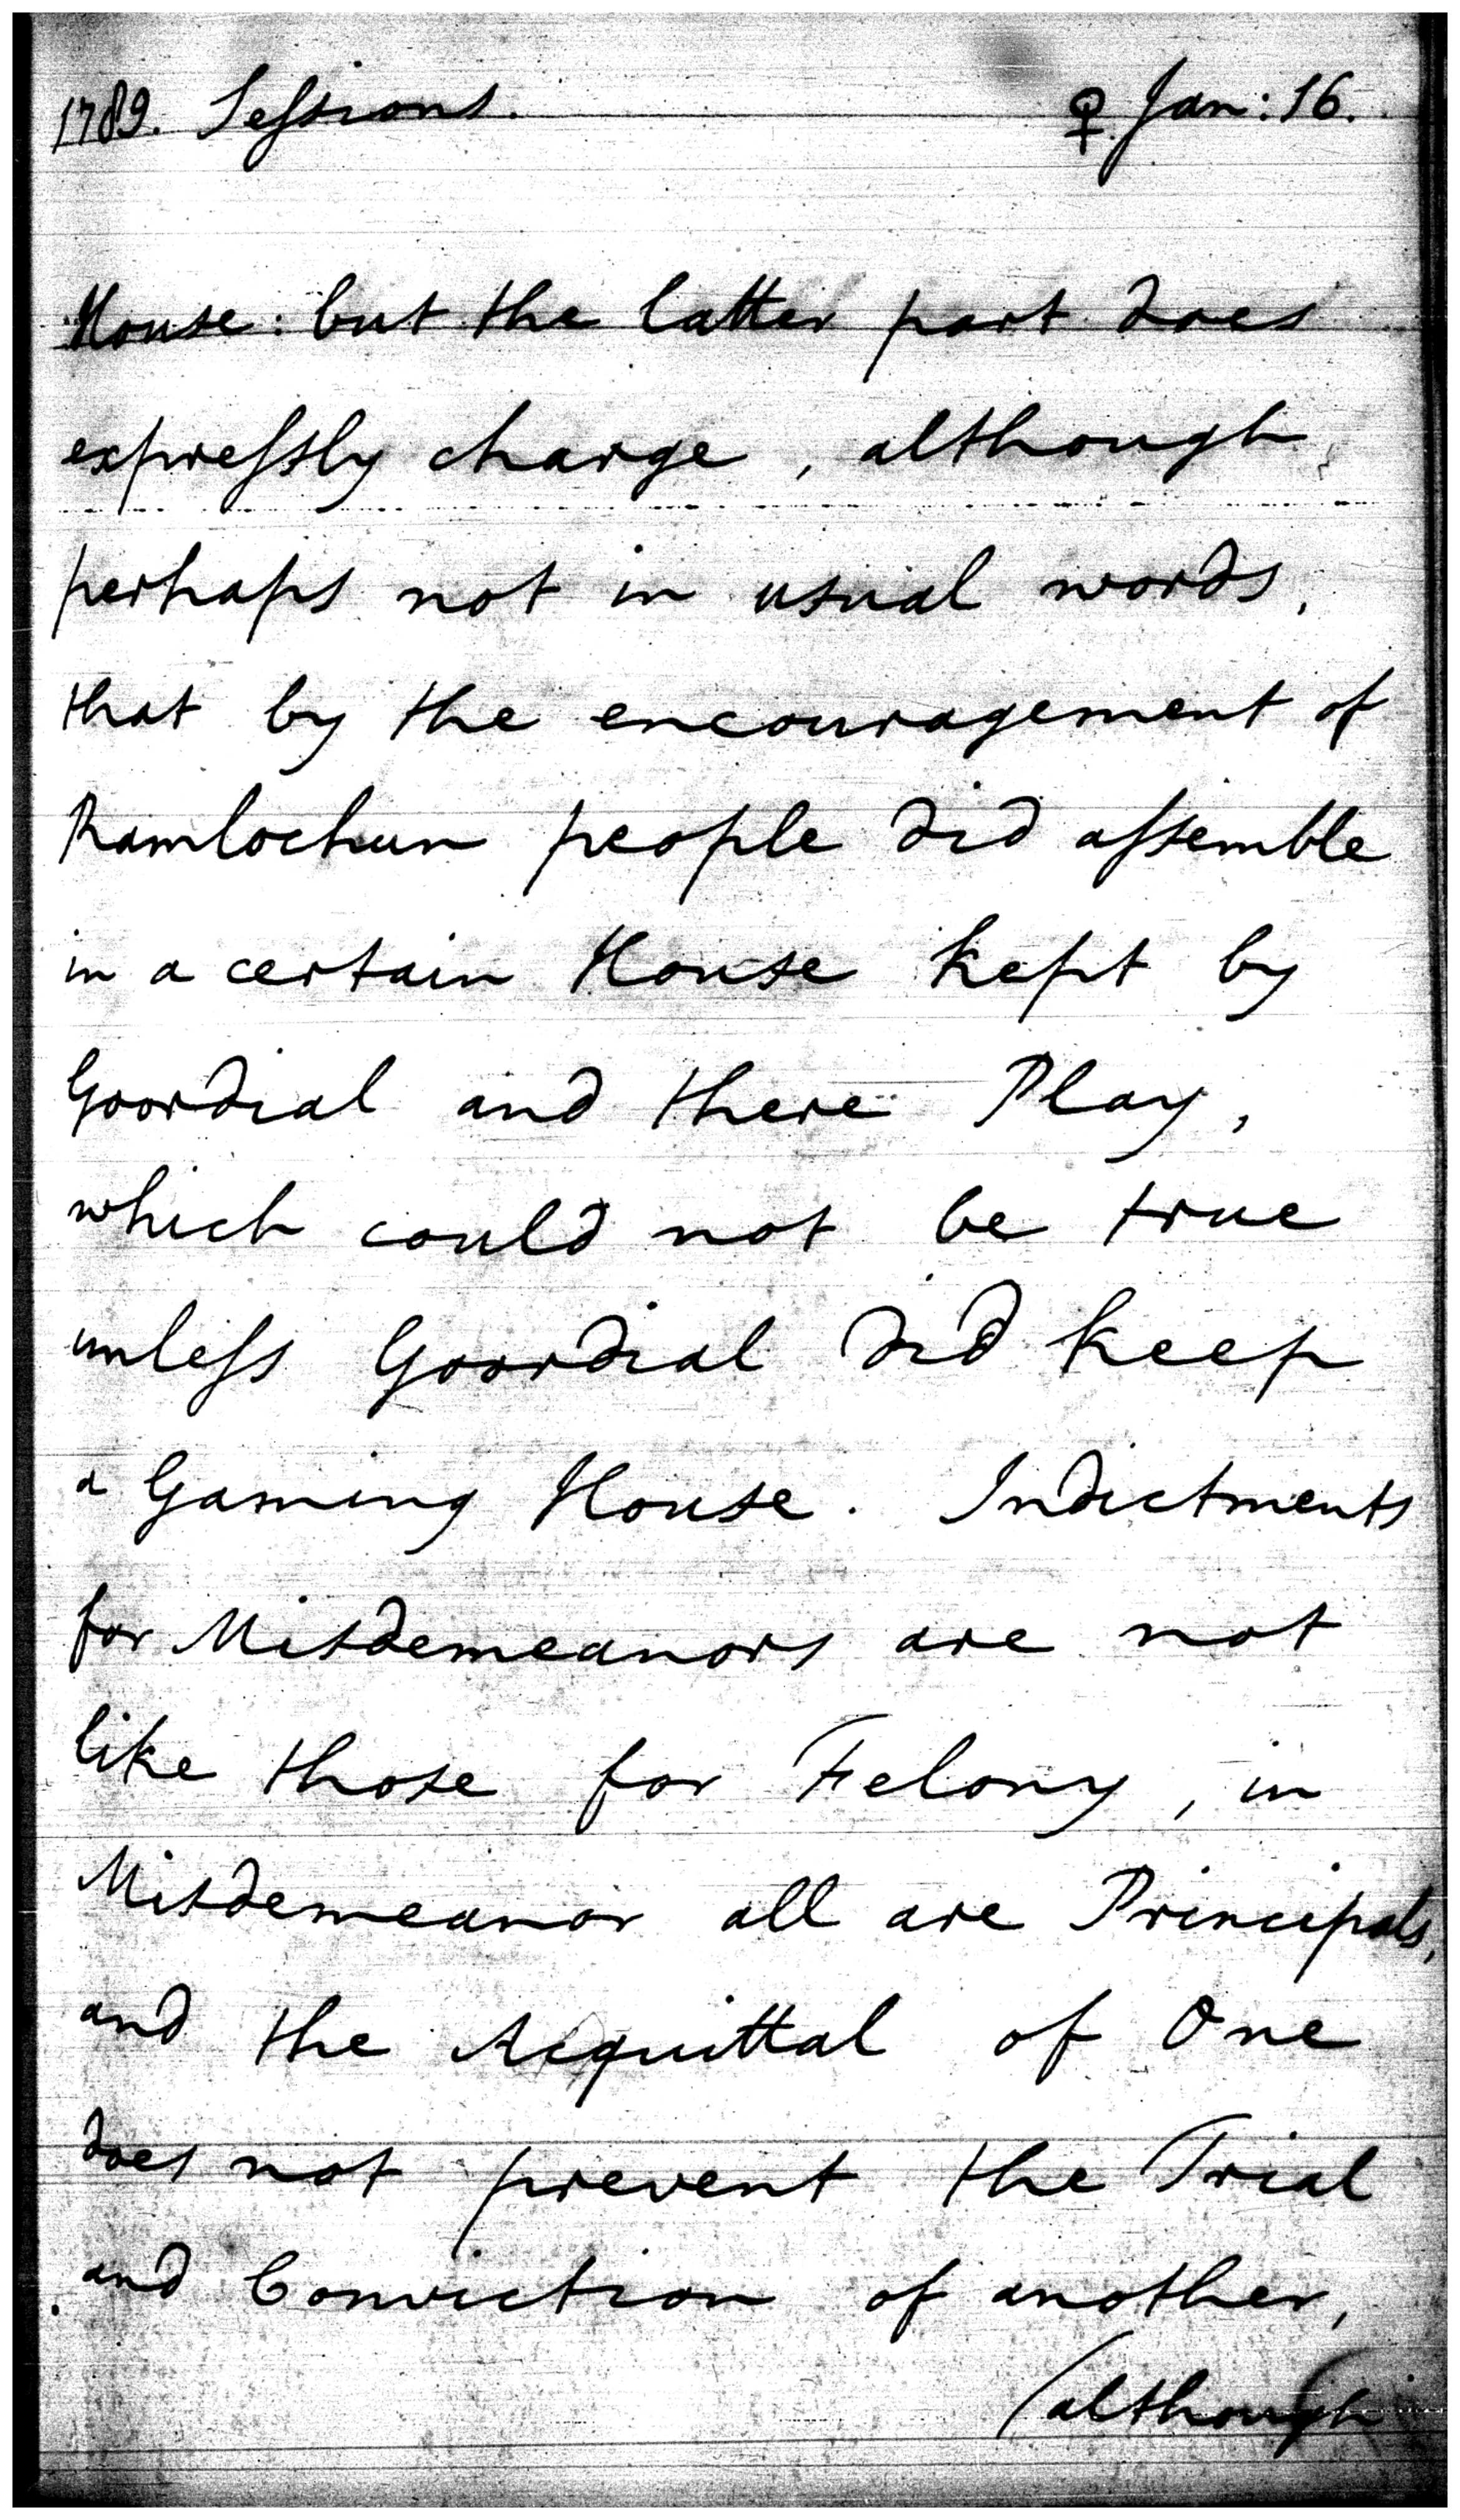 1789. Seſsions. ♀ Jan: 16.
House: but the latter part does
expreſsly charge, although
perhaps not in usual words,
that by the encouragement of
Ramlochun people did aſsemble
in a certain House kept by
Goordial and there Play,
which could not be true
unleſs Goordial did keep
a Gaming House. Indictments
for Misdemeanors are not
like those for Felony, in
Misdemeanor all are Principals,
and the Acquittal of One
does not prevent the Trial
and Conviction of another,
(although